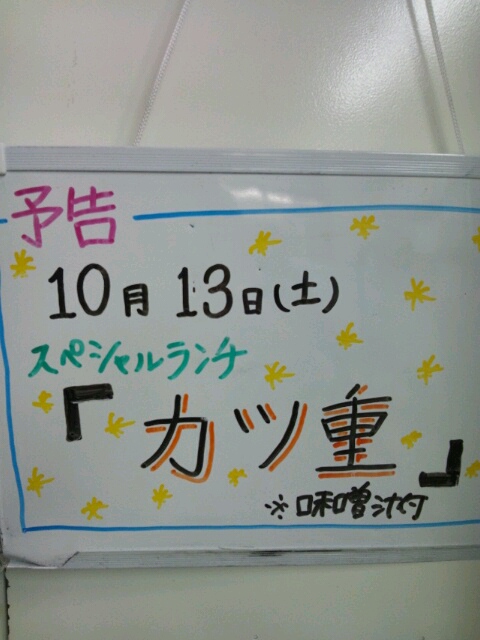 予告
10月13日(土)
スペシャルランチ
「カツ重」
※味噌汁付